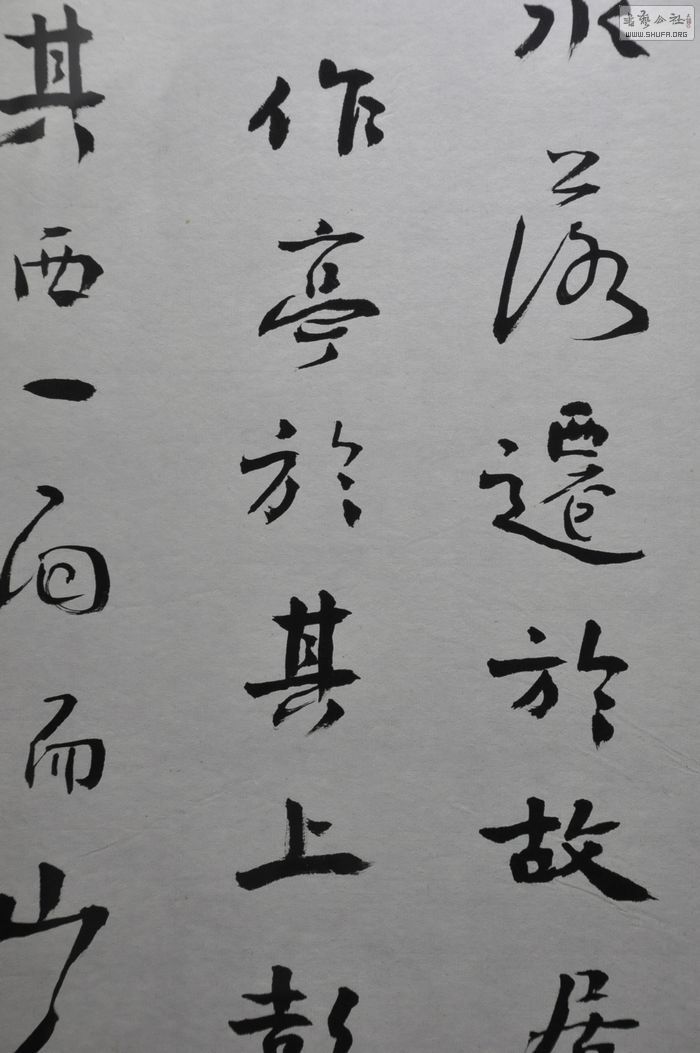 水落遷於故居
作亭於其上彭
其西一面而山
書藝公社
WWW.SHUFA.ORG